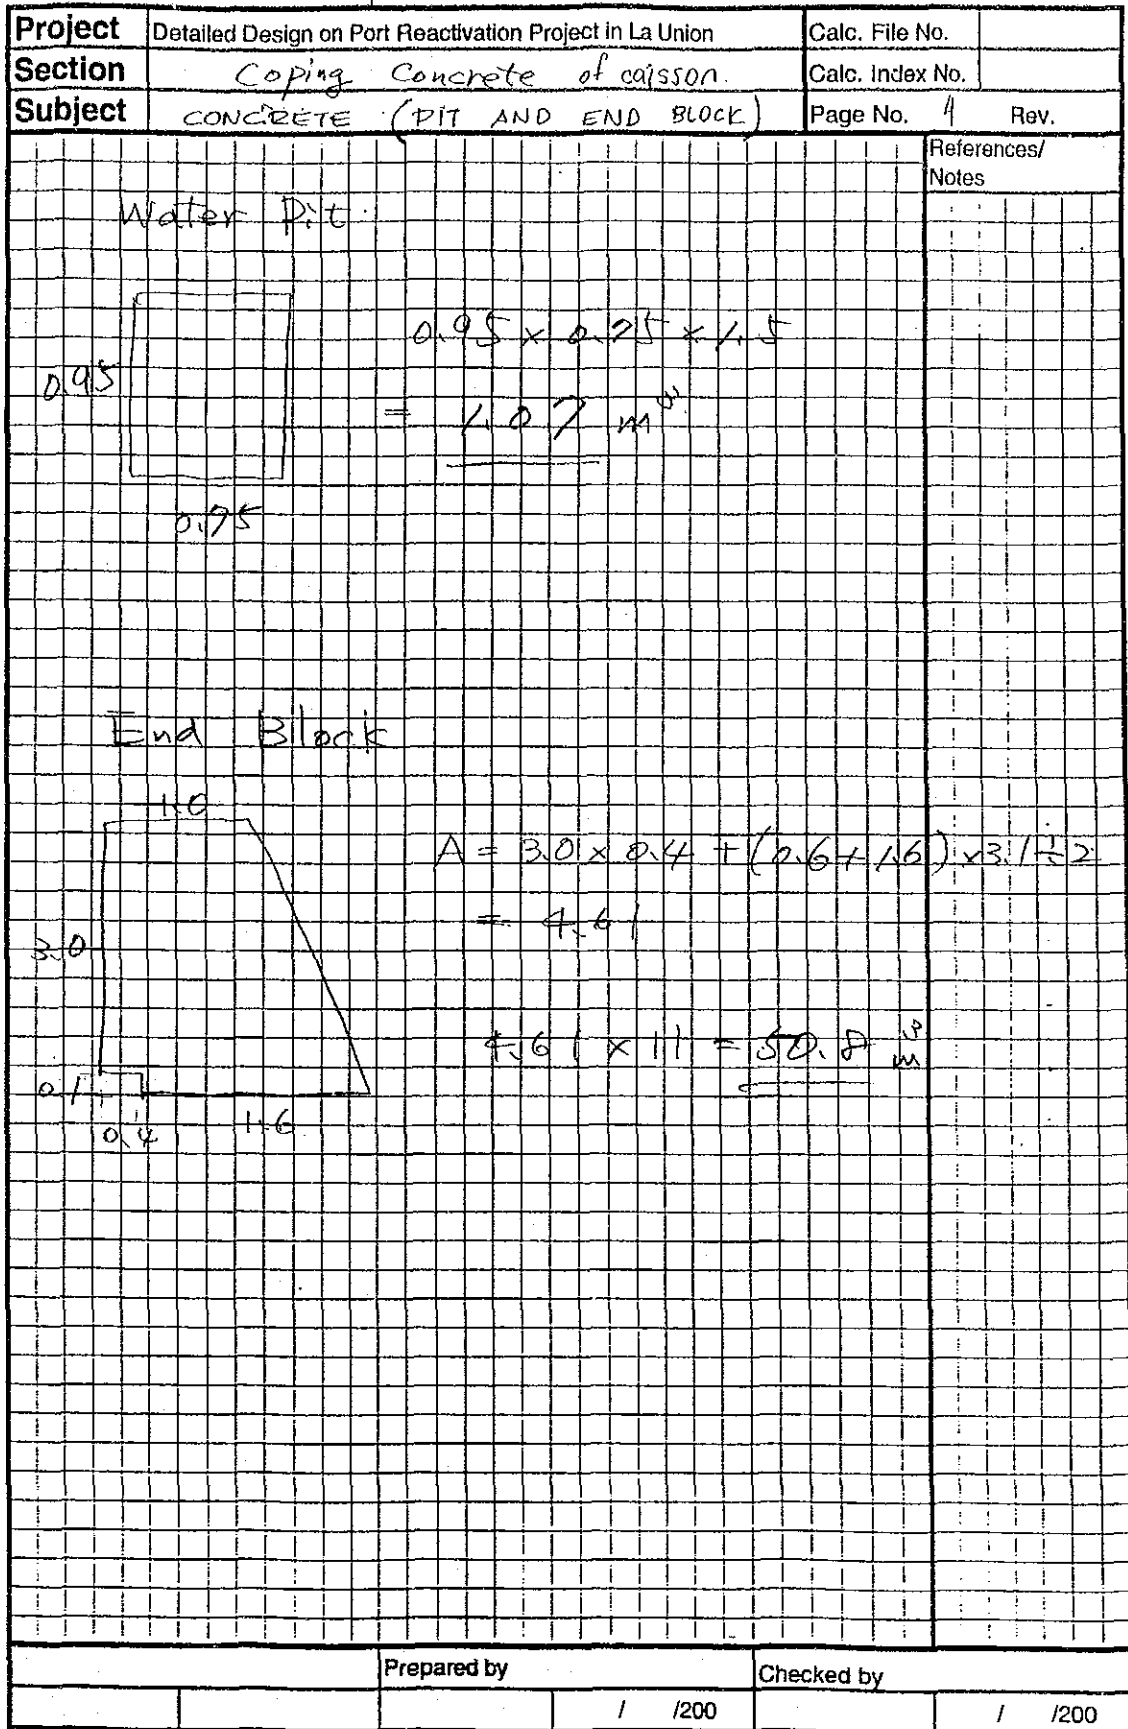 Project Detailed Design on Port Reactivation Project in La Union Calc. File No.
Section Coping Concrete of caisson. Calc. Index No.
Subject CONCRETE (PIT AND END BLOCK) Page No. 4 Rev.
References/
Notes
Water Pit
0.95 x 0.75 x 1.5
0.95
= 1.07 m³
0.75
End Block
1.0
A = 3.0 x 0.4 + (0.6 + 1.6) x 3.1 ÷ 2
= 4.61
3.0
4.61 x 11 = 50.8 m³
0.1
0.4 1.6
Prepared by Checked by
/ /200 / /200